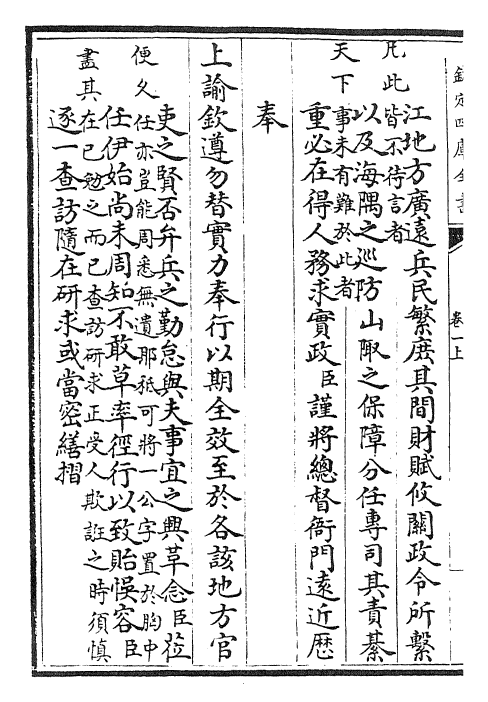 欽定四庫全書
卷一上
江地方廣遠兵民繁庶其間財賦攸關政令所繫
凡此皆不待言者
以及海隅之巡防山陬之保障分任專司其責綦
天下事未有難於此者
重必在得人務求實政臣謹將總督衙門遠近歴
奉
上諭欽遵勿替實力奉行以期全效至於各該地方官
吏之賢否弁兵之勤怠與夫事宜之興革念臣蒞
便久任亦豈能周悉無遺耶秪可將一公字置於胸中
任伊始尚未周知不敢草率徑行以致貽悞容臣
盡其在己勉之而已查訪研求正受人欺誑之時須慎
逐一查訪隨在研求或當密繕摺